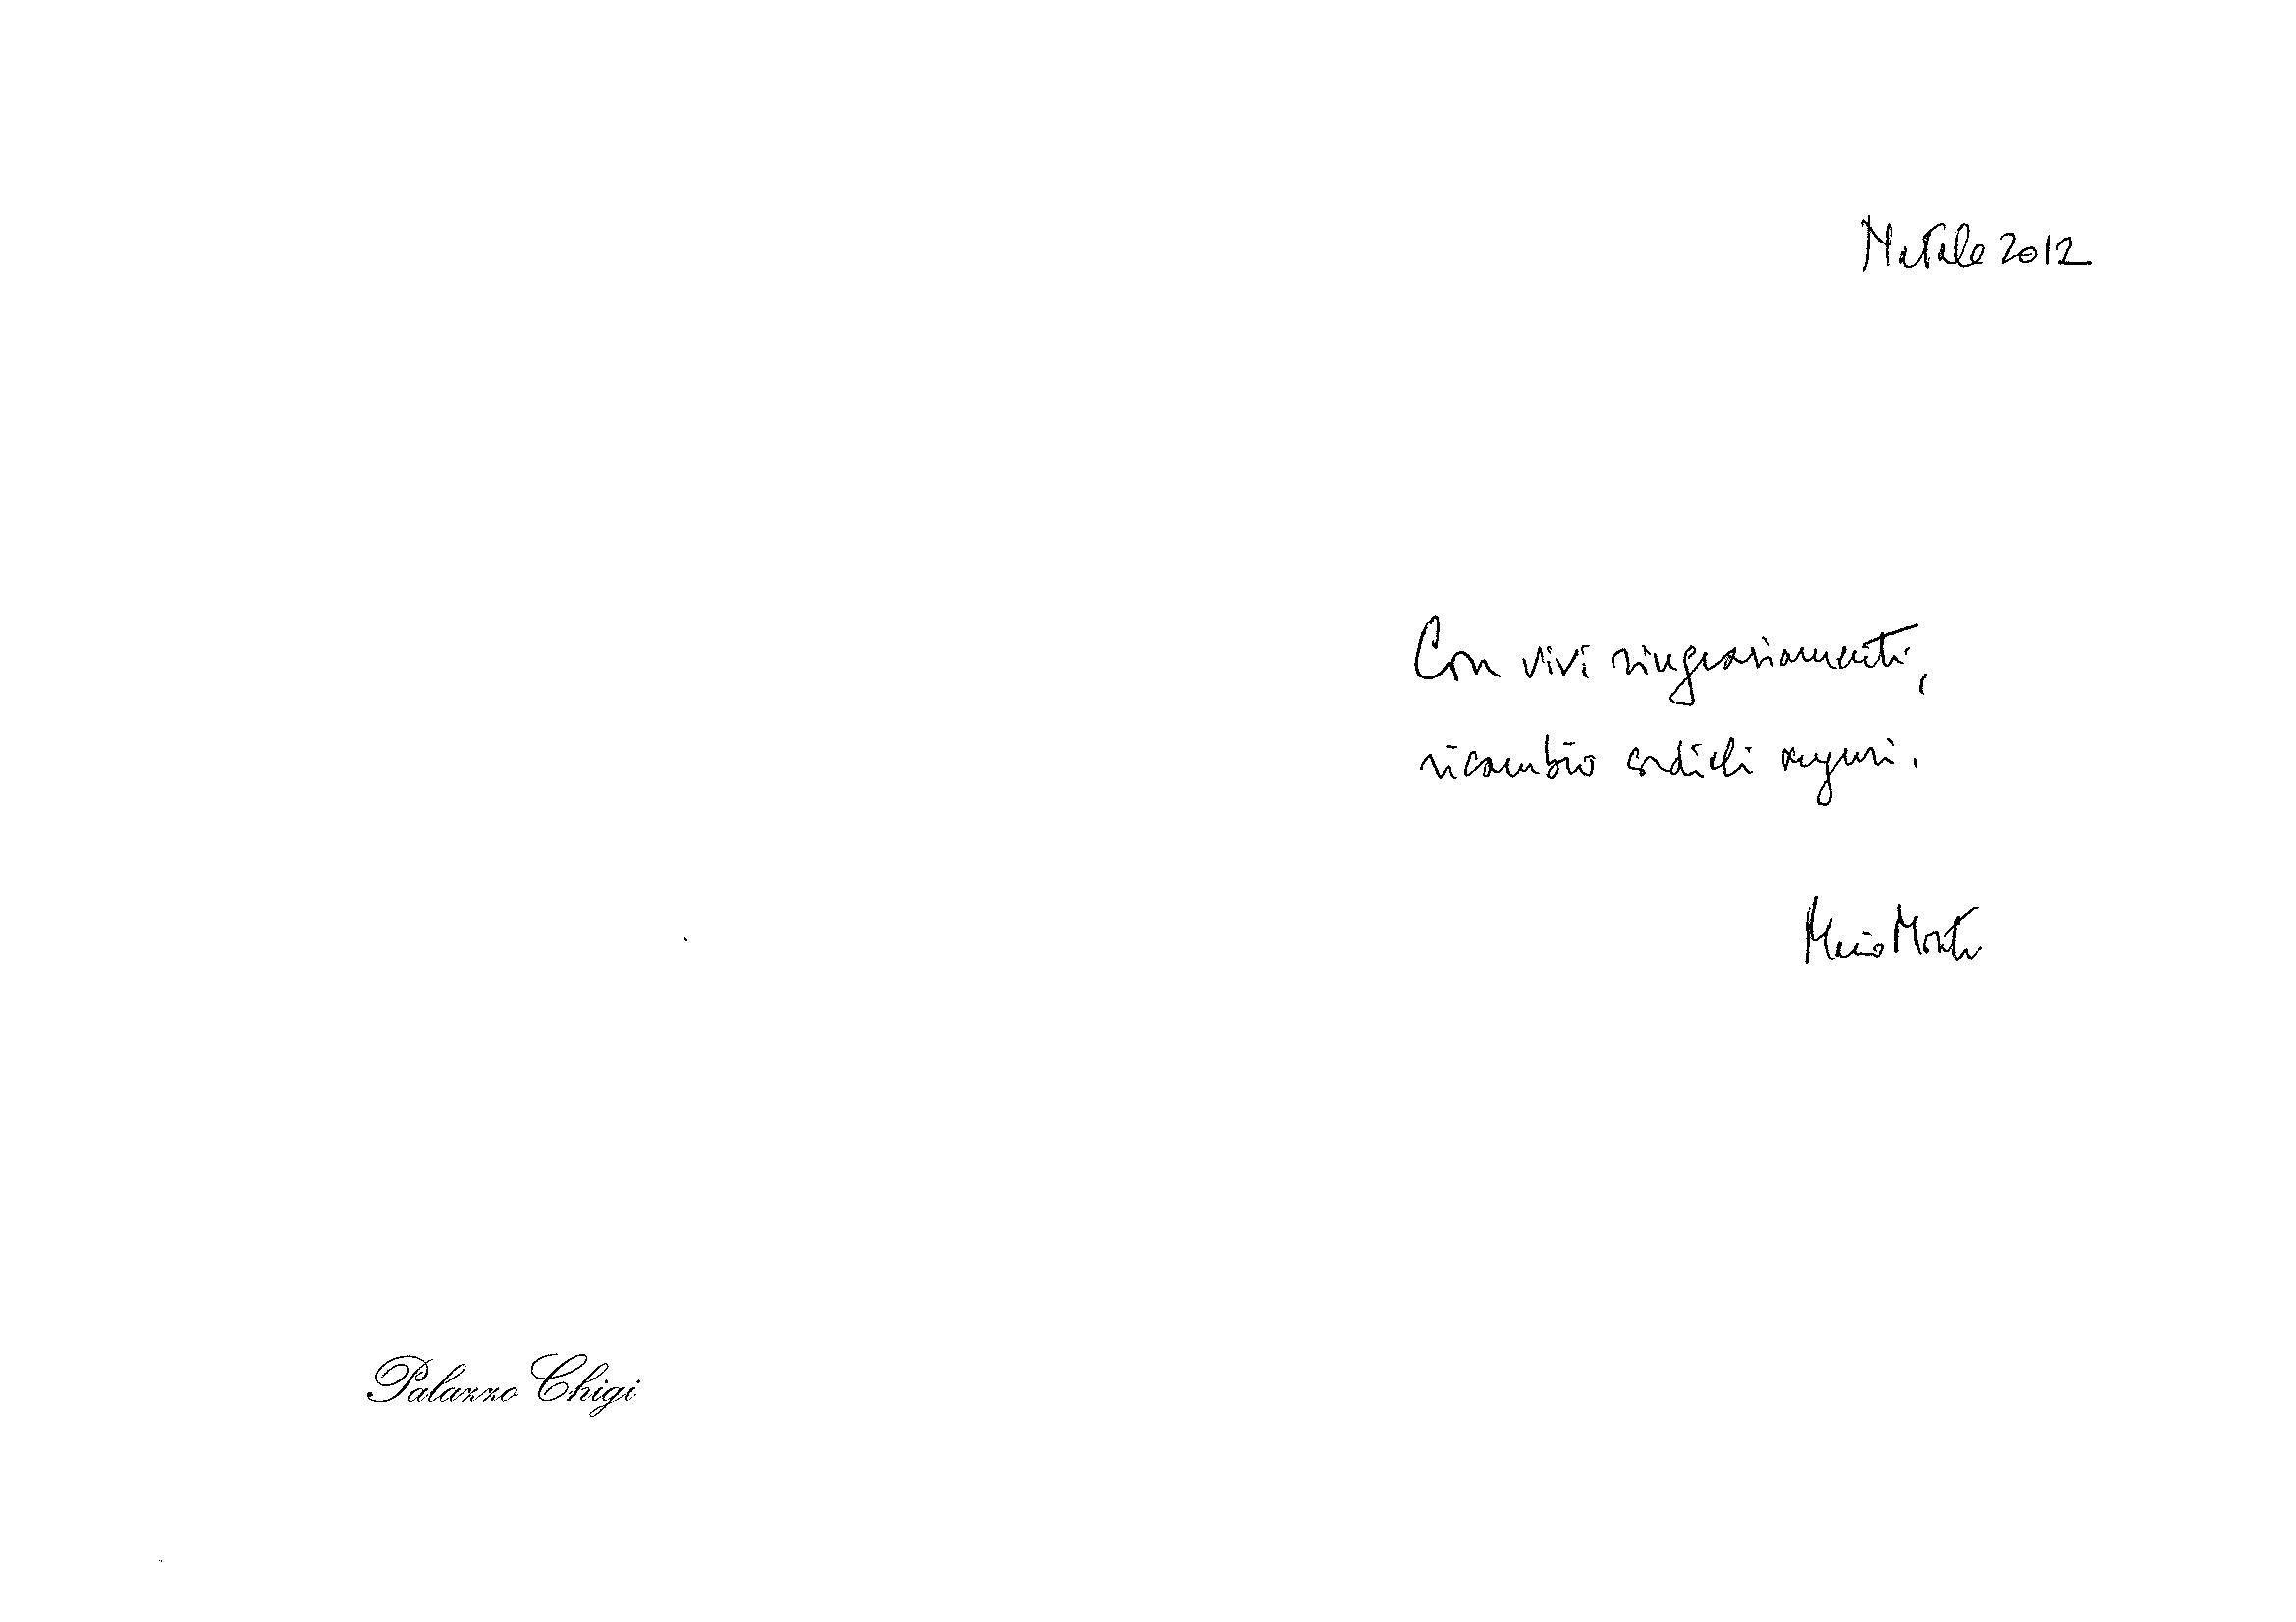 Natale 2012
Con vivi ringraziamenti,
ricambio cordiali auguri.
Mario Monti
Palazzo Chigi